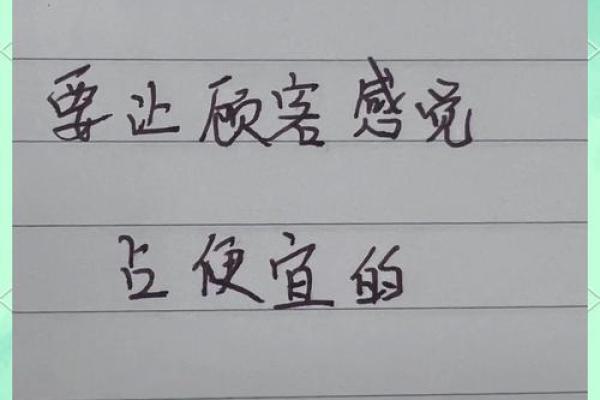 要让顾客感觉
占便宜的